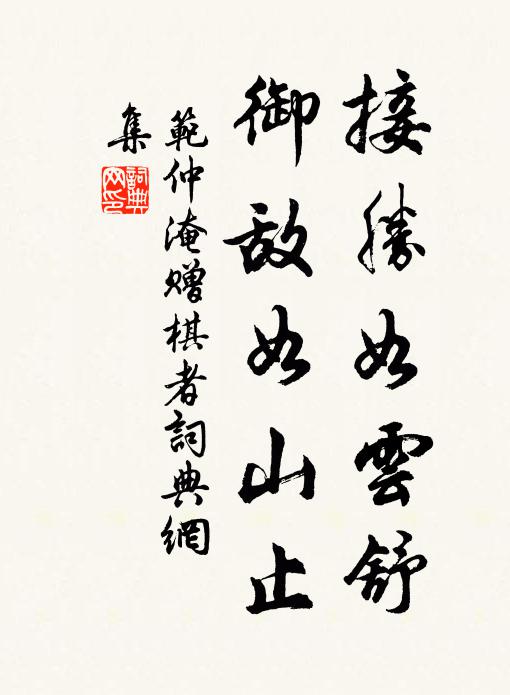 接勝如雲舒
御敌如山止
範仲淹贈棋者詞典網
集
詞典
网印